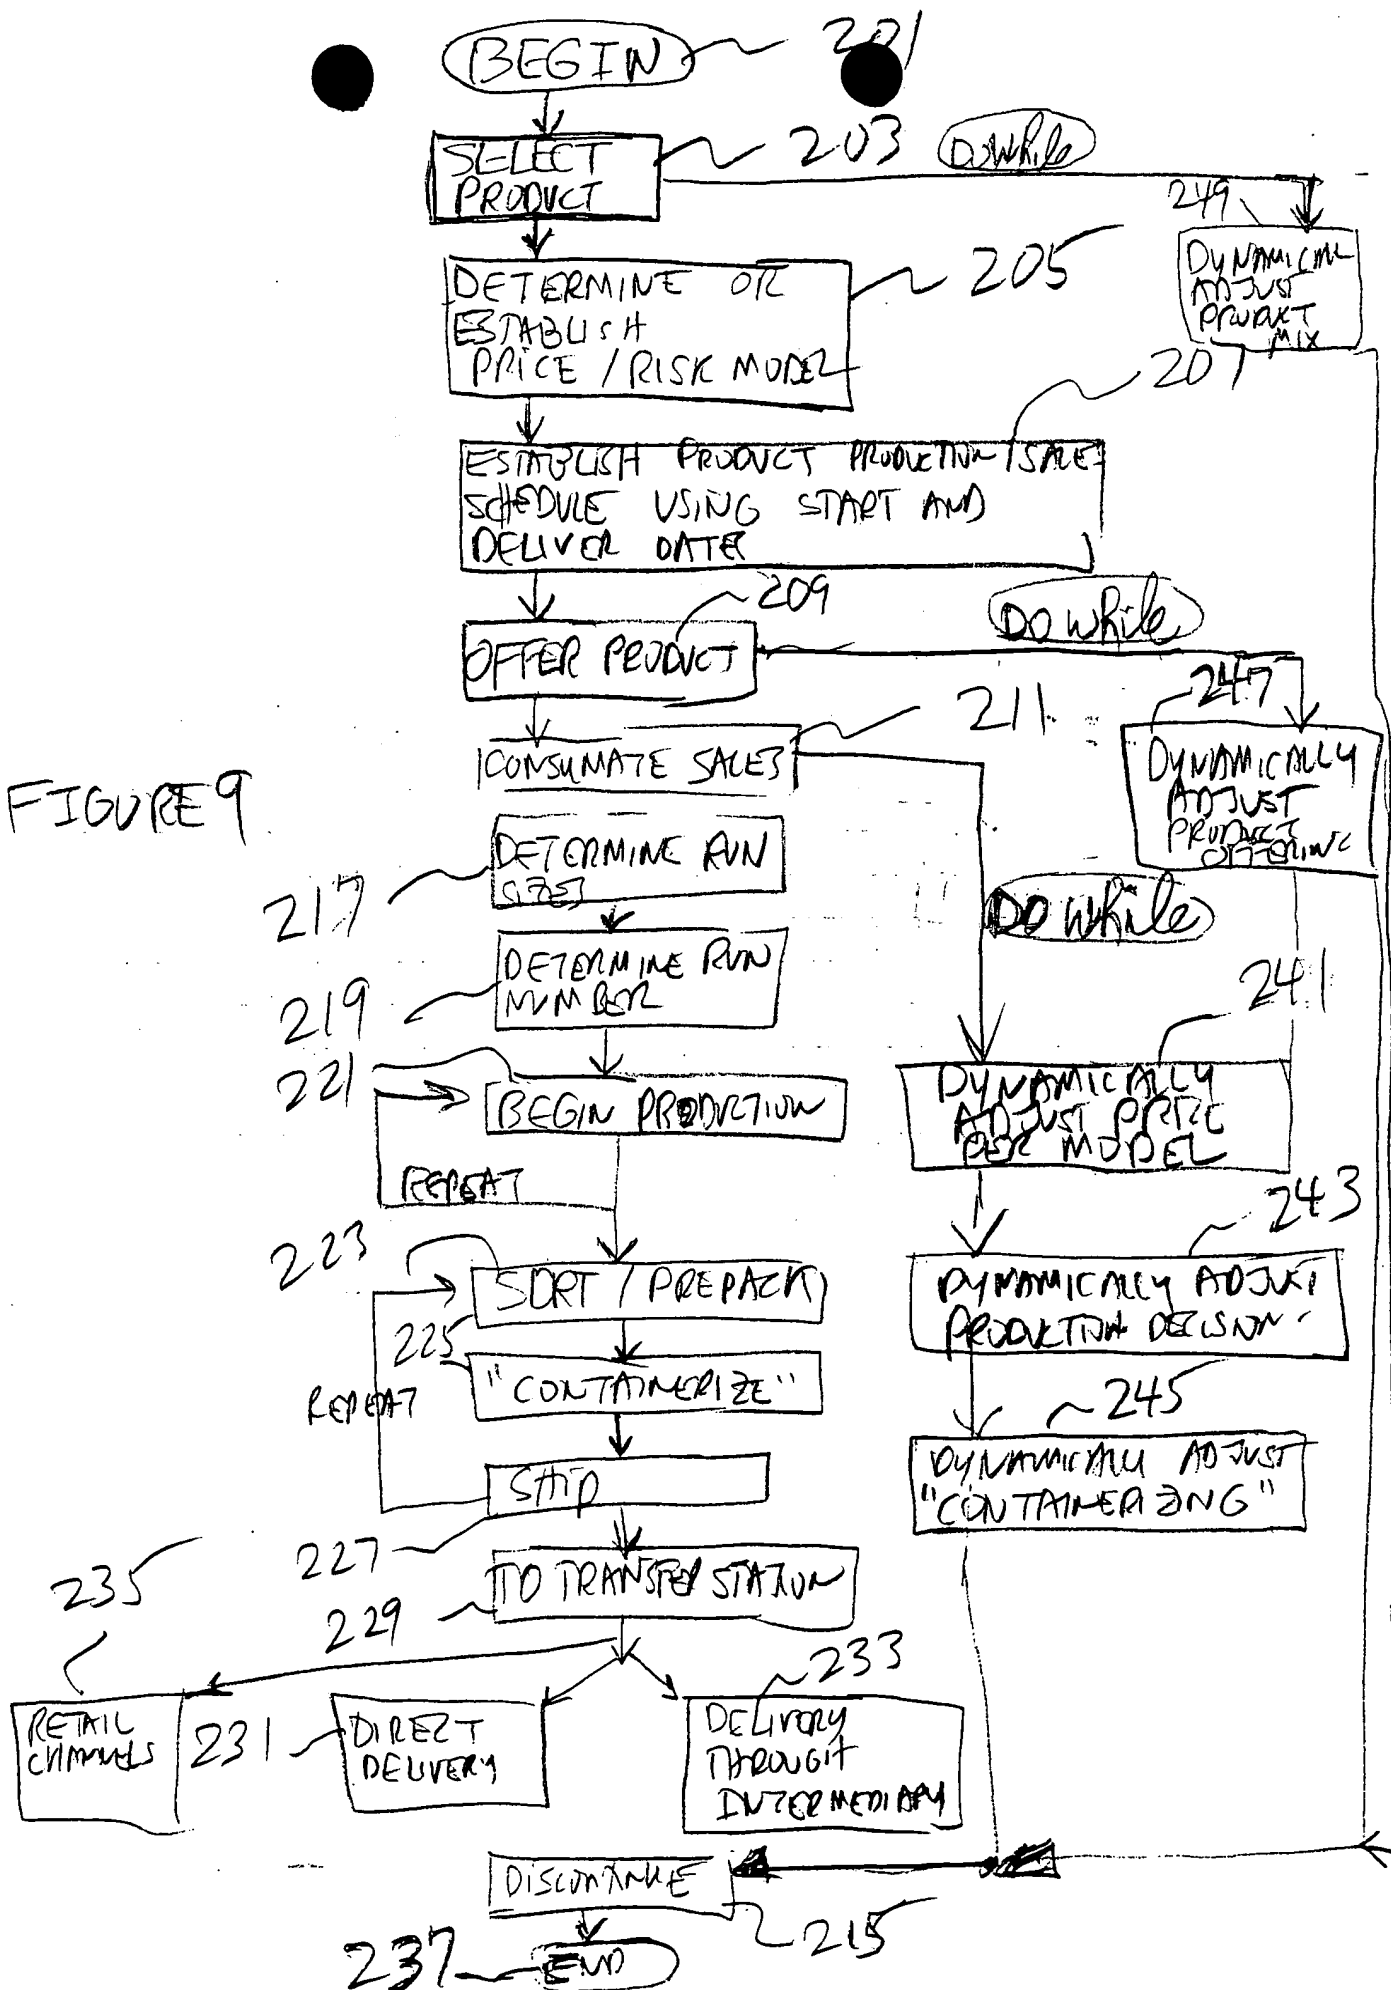 BEGIN
201
SELECT
PRODUCT
203
DO While
249
DYNAMICAL
ADJUST
PRODUCT
MIX
DETERMINE OR
ESTABLISH
PRICE / RISK MODEL
205
207
ESTABLISH PRODUCT PRODUCTION / SALES
SCHEDULE USING START AND
DELIVER DATES
209
DO While
OFFER PRODUCT
247
211
CONSUMATE SALES
DYNAMICALLY
ADJUST
PRODUCT
OFFERING
FIGURE 9
DETERMINE RUN
SIZES
217
DO While
DETERMINE RUN
NUMBER
219
241
221
BEGIN PRODUCTION
DYNAMICALLY
ADJUST PRICE
PER MODEL
REPEAT
243
223
SORT / PREPACK
DYNAMICALLY ADJUST
PRODUCTION DECISION
225
"CONTAINERIZE"
REPEAT
245
SHIP
DYNAMICALLY ADJUST
"CONTAINERIZING"
227
TO TRANSFER STATION
229
235
233
RETAIL
CHANNELS
231
DIRECT
DELIVERY
DELIVERY
THROUGH
INTERMEDIARY
DISCONTINUE
215
237
END